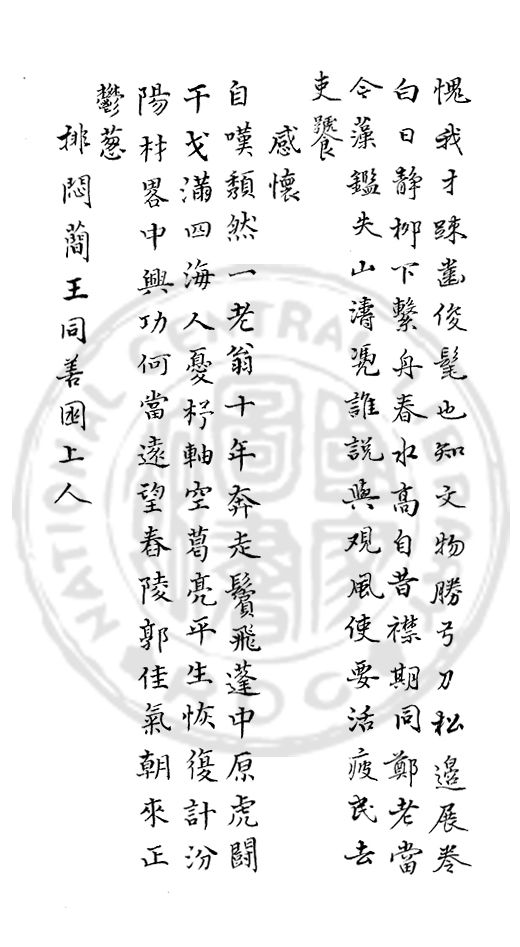 愧我才踈齒俊髦也知文物勝弓刀松邉展卷
白日靜柳下繫舟春水高自昔襟期同鄭老當
今藻鑑失山濤凴誰説與观風使要活疲民去
吏饕
感懷
自嘆頽然一老翁十年奔走鬢飛蓬中原虎鬪
干戈滿四海人憂杼軸空葛亮平生恢復計汾
陽材畧中興功何當遠望舂陵郭佳氣朝來正
鬱葱
排悶蕳王同善國上人
NATIONAL CENTRAL LIBRARY